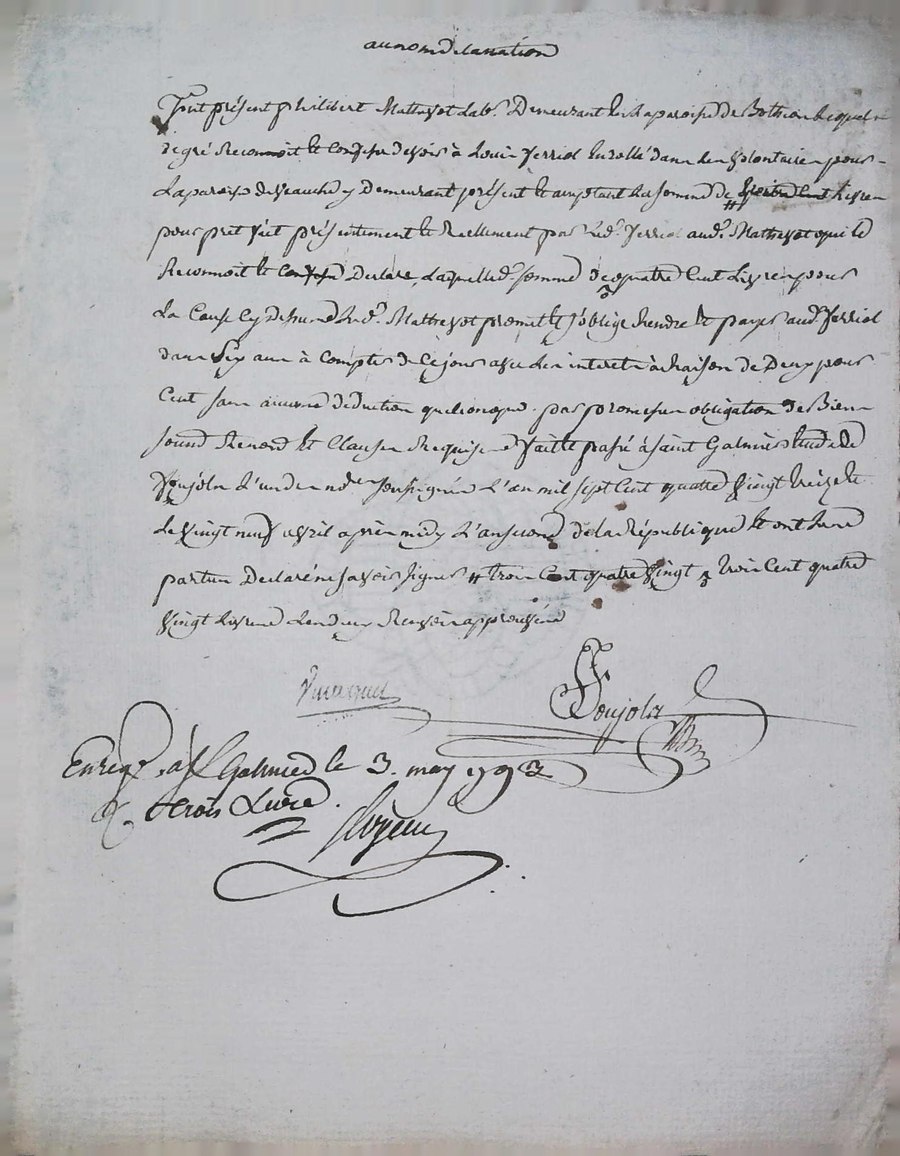 au nom de la nation
fut présent philibert Mathevot Labr. Demeurant En La paroisse de Bothéon Lequel
de gré Reconnoit Et Confesse devoir à Louis ferriol Enrollé dans Les volontaires pour
La paroisse de veauche y Demeurant présent Et acceptant La somme de # Livres
pour prêt fait présentement Et Reellement par Led. ferriol aud. Mathevot qui le
Reconnoit Et Confesse Déclare, Laquelle d. somme de quatre Cent Livres pour
La Cause Cy Dessus Led. Mathevot promet Et s'oblige Rendre Et payer aud. ferriol
dans Six ans à Compter de Ce jour avec Les interets à Raison de Deux pour
Cent sans aucune déduction quelconque par promesse obligation de Biens
soumo Renond Et Clauses Requises faitte passé à saint Galmier Etude de
foujols L'un des nore. soussignés L'an mil sept Cent quatre vingt treize Et
Le vingt neuf avril après midy L'an second de la République Et ont Les
parties Declaré ne savoir signer # trois Cent quatre vingt 3 trois Cent quatre
vingt Livres Les deux Renvois approuvés
foujols
Enreg. à St. Galmier le 3. may 1793
R. trois Livres.